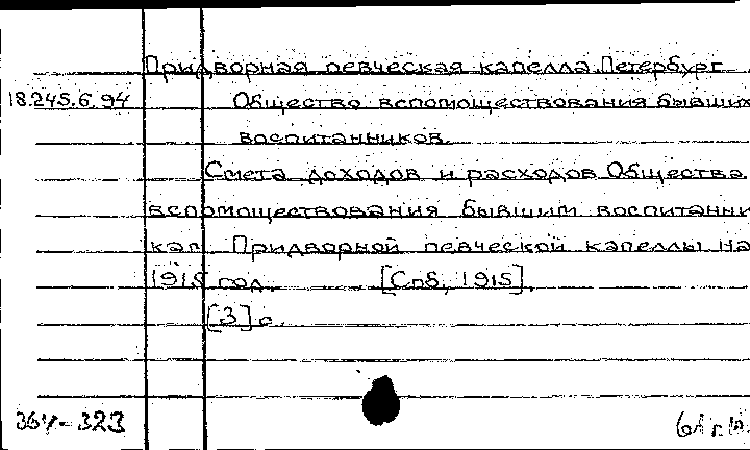 Придворная певческая капелла. Петербург.
18.245.6.94 Общество вспомоществования бывших
воспитанников.
Смета доходов и расходов Общества
вспомоществования бывшим воспитанни
кам Придворной певческой капеллы на
1915 год. [Спб, 1915].
[3] с.
364-323